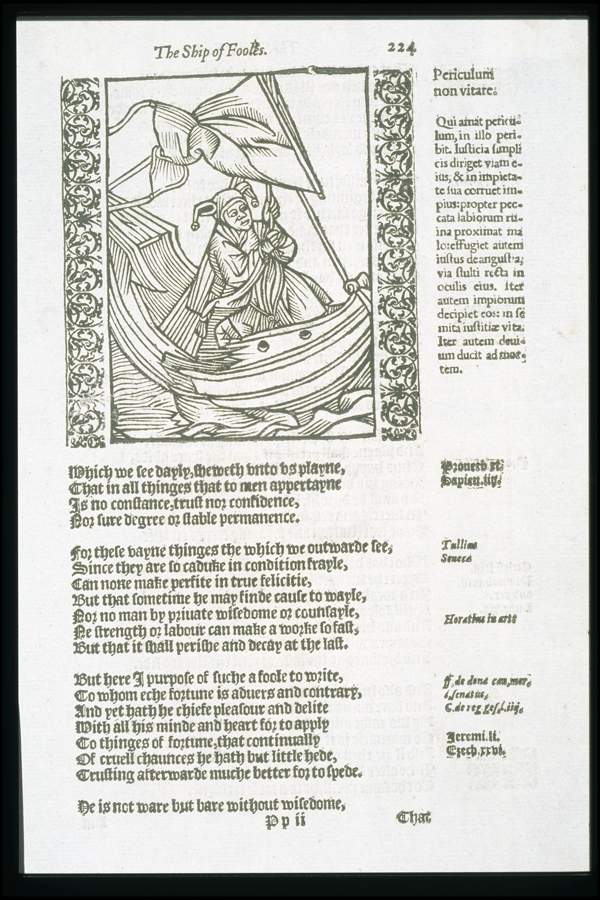 The Ship of Fooles.
224
Periculum
non vitare.
Qui amat pericu-
lum, in illo peri-
bit. Iusticia simpli
cis diriget viam e-
ius, & in impieta-
te sua corruet im-
pius: propter pec-
cata labiorum ru-
ina proximat ma
lo: effugiet autem
iustus de angustia;
via stulti recta in
oculis eius. Iter
autem impiorum
decipiet eos: in se
mita iustitiæ vita.
Iter autem deui-
um ducit ad mor-
tem.
Which we see dayly, sheweth vnto vs playne,
That in all thinges that to men appertayne
Is no constance, trust nor confidence,
Nor sure degree or stable permanence.
Prouerb
Sapien. iiij.
For these vayne thinges the which we outwarde see,
Since they are so caduke in condition frayle,
Can none make perfite in true felicitie,
But that sometime he may finde cause to wayle,
Nor no man by priuate wisedome or counsayle,
Ne strength or labour can make a worke so fast,
But that it shall perishe and decay at the last.
Tullius
Seneca
Horatius in arte
But here I purpose of suche a foole to write,
To whom eche fortune is aduers and contrary,
And yet hath he chiefe pleasour and delite
With all his minde and heart for to apply
To thinges of fortune, that continually
Of cruell chaunces he hath but little hede,
Trusting afterwarde muche better for to spede.
ff. de dona
C. de reg
Jeremi. li.
Ezech. xxvi.
He is not ware but bare without wisedome,
P p ii
That